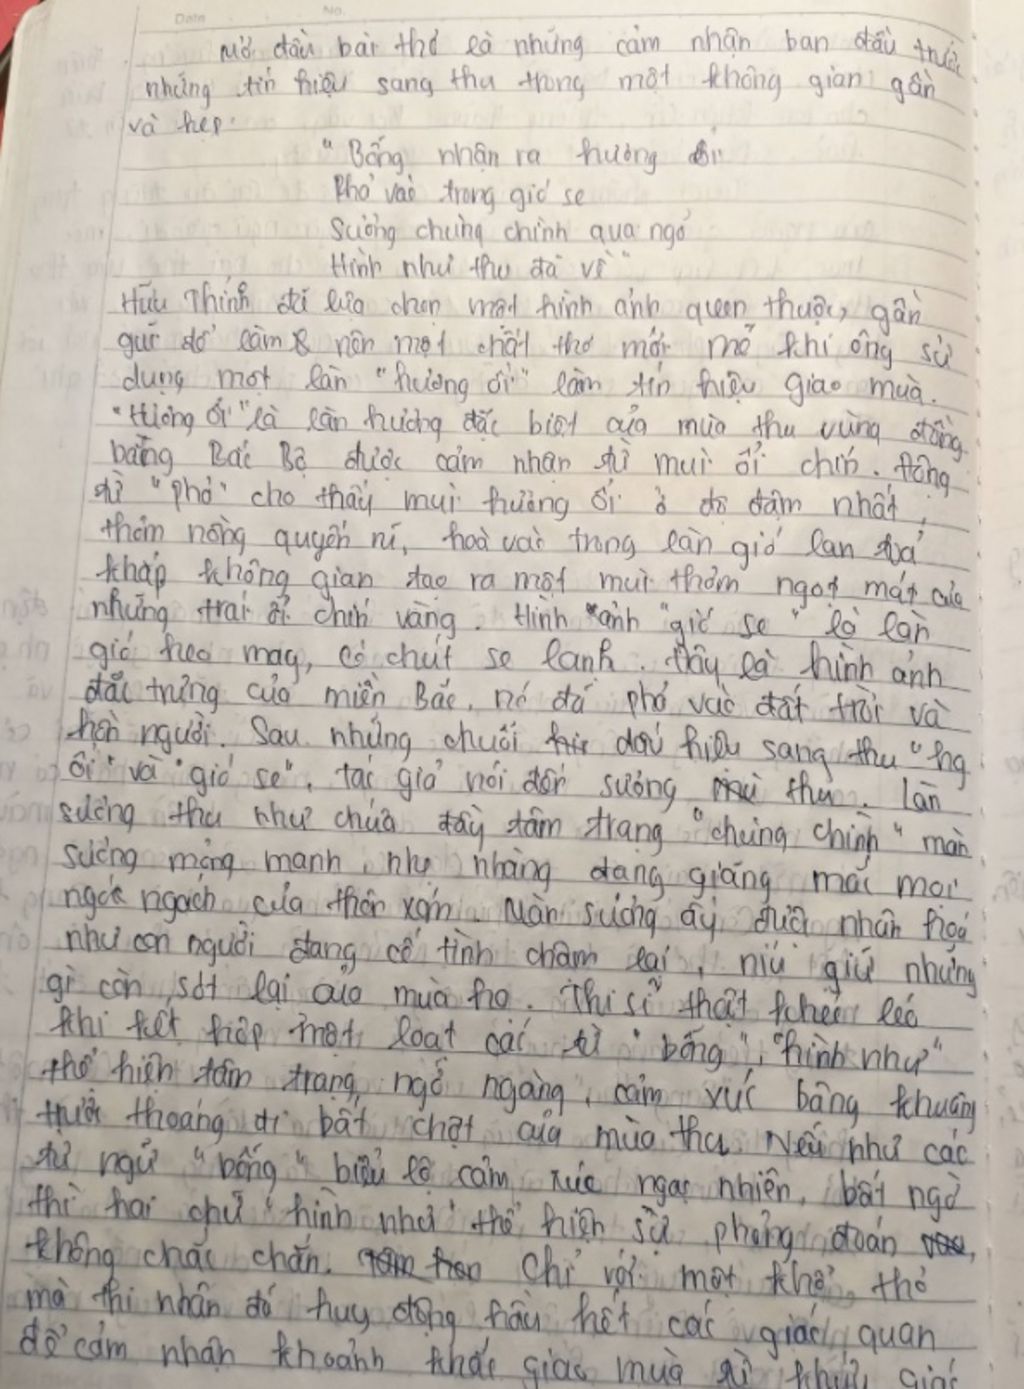 Date No.
Mở đầu bài thơ là những cảm nhận ban đầu trước
những tín hiệu sang thu trong một không gian gần
và hẹp.
"Bỗng nhận ra hương ổi
Phả vào trong gió se
Sương chùng chình qua ngõ
Hình như thu đã về"
Hữu Thỉnh đã lựa chọn một hình ảnh quen thuộc, gần
gũi để làm nên một chất thơ mới mẻ khi ông sử
dụng một làn "hương ổi" làm tín hiệu giao mùa.
"Hương ổi" là làn hương đặc biệt của mùa thu vùng đồng
bằng Bắc Bộ được cảm nhận từ mùi ổi chín. Động
từ "phả" cho thấy mùi hương ổi ở độ đậm nhất,
thơm nồng quyến rũ, hoà vào trong làn gió lan toả
khắp không gian tạo ra một mùi thơm ngọt mát của
những trái ổi chín vàng. Hình ảnh "gió se" là làn
gió heo may, có chút se lạnh. Đây là hình ảnh
đặc trưng của miền Bắc, nó đã phả vào đất trời và
hồn người. Sau những chuỗi dấu hiệu sang thu "hg
ổi" và "gió se", tác giả nói đến sương thu. Làn
sương thu như chứa đầy tâm trạng "chùng chình" màn
sương mỏng manh, nhẹ nhàng đang giăng mắc mọi
ngóc ngách của thôn xóm. Màn sương ấy được nhân hoá
như con người đang cố tình chậm lại, níu giữ những
gì còn sót lại của mùa hạ. Thi sĩ thật khéo léo
khi kết hợp một loạt các từ "bỗng", "hình như"
thể hiện tâm trạng ngỡ ngàng, cảm xúc bâng khuâng
trước thoáng đi bất chợt của mùa thu. Nếu như các
từ ngữ "bỗng" biểu lộ cảm xúc ngạc nhiên, bất ngờ
thì hai chữ "hình như" thể hiện sự phỏng đoán
không chắc chắn. Chỉ với một khổ thơ
mà thi nhân đã huy động hầu hết các giác quan
để cảm nhận khoảnh khắc giao mùa từ khứu giác